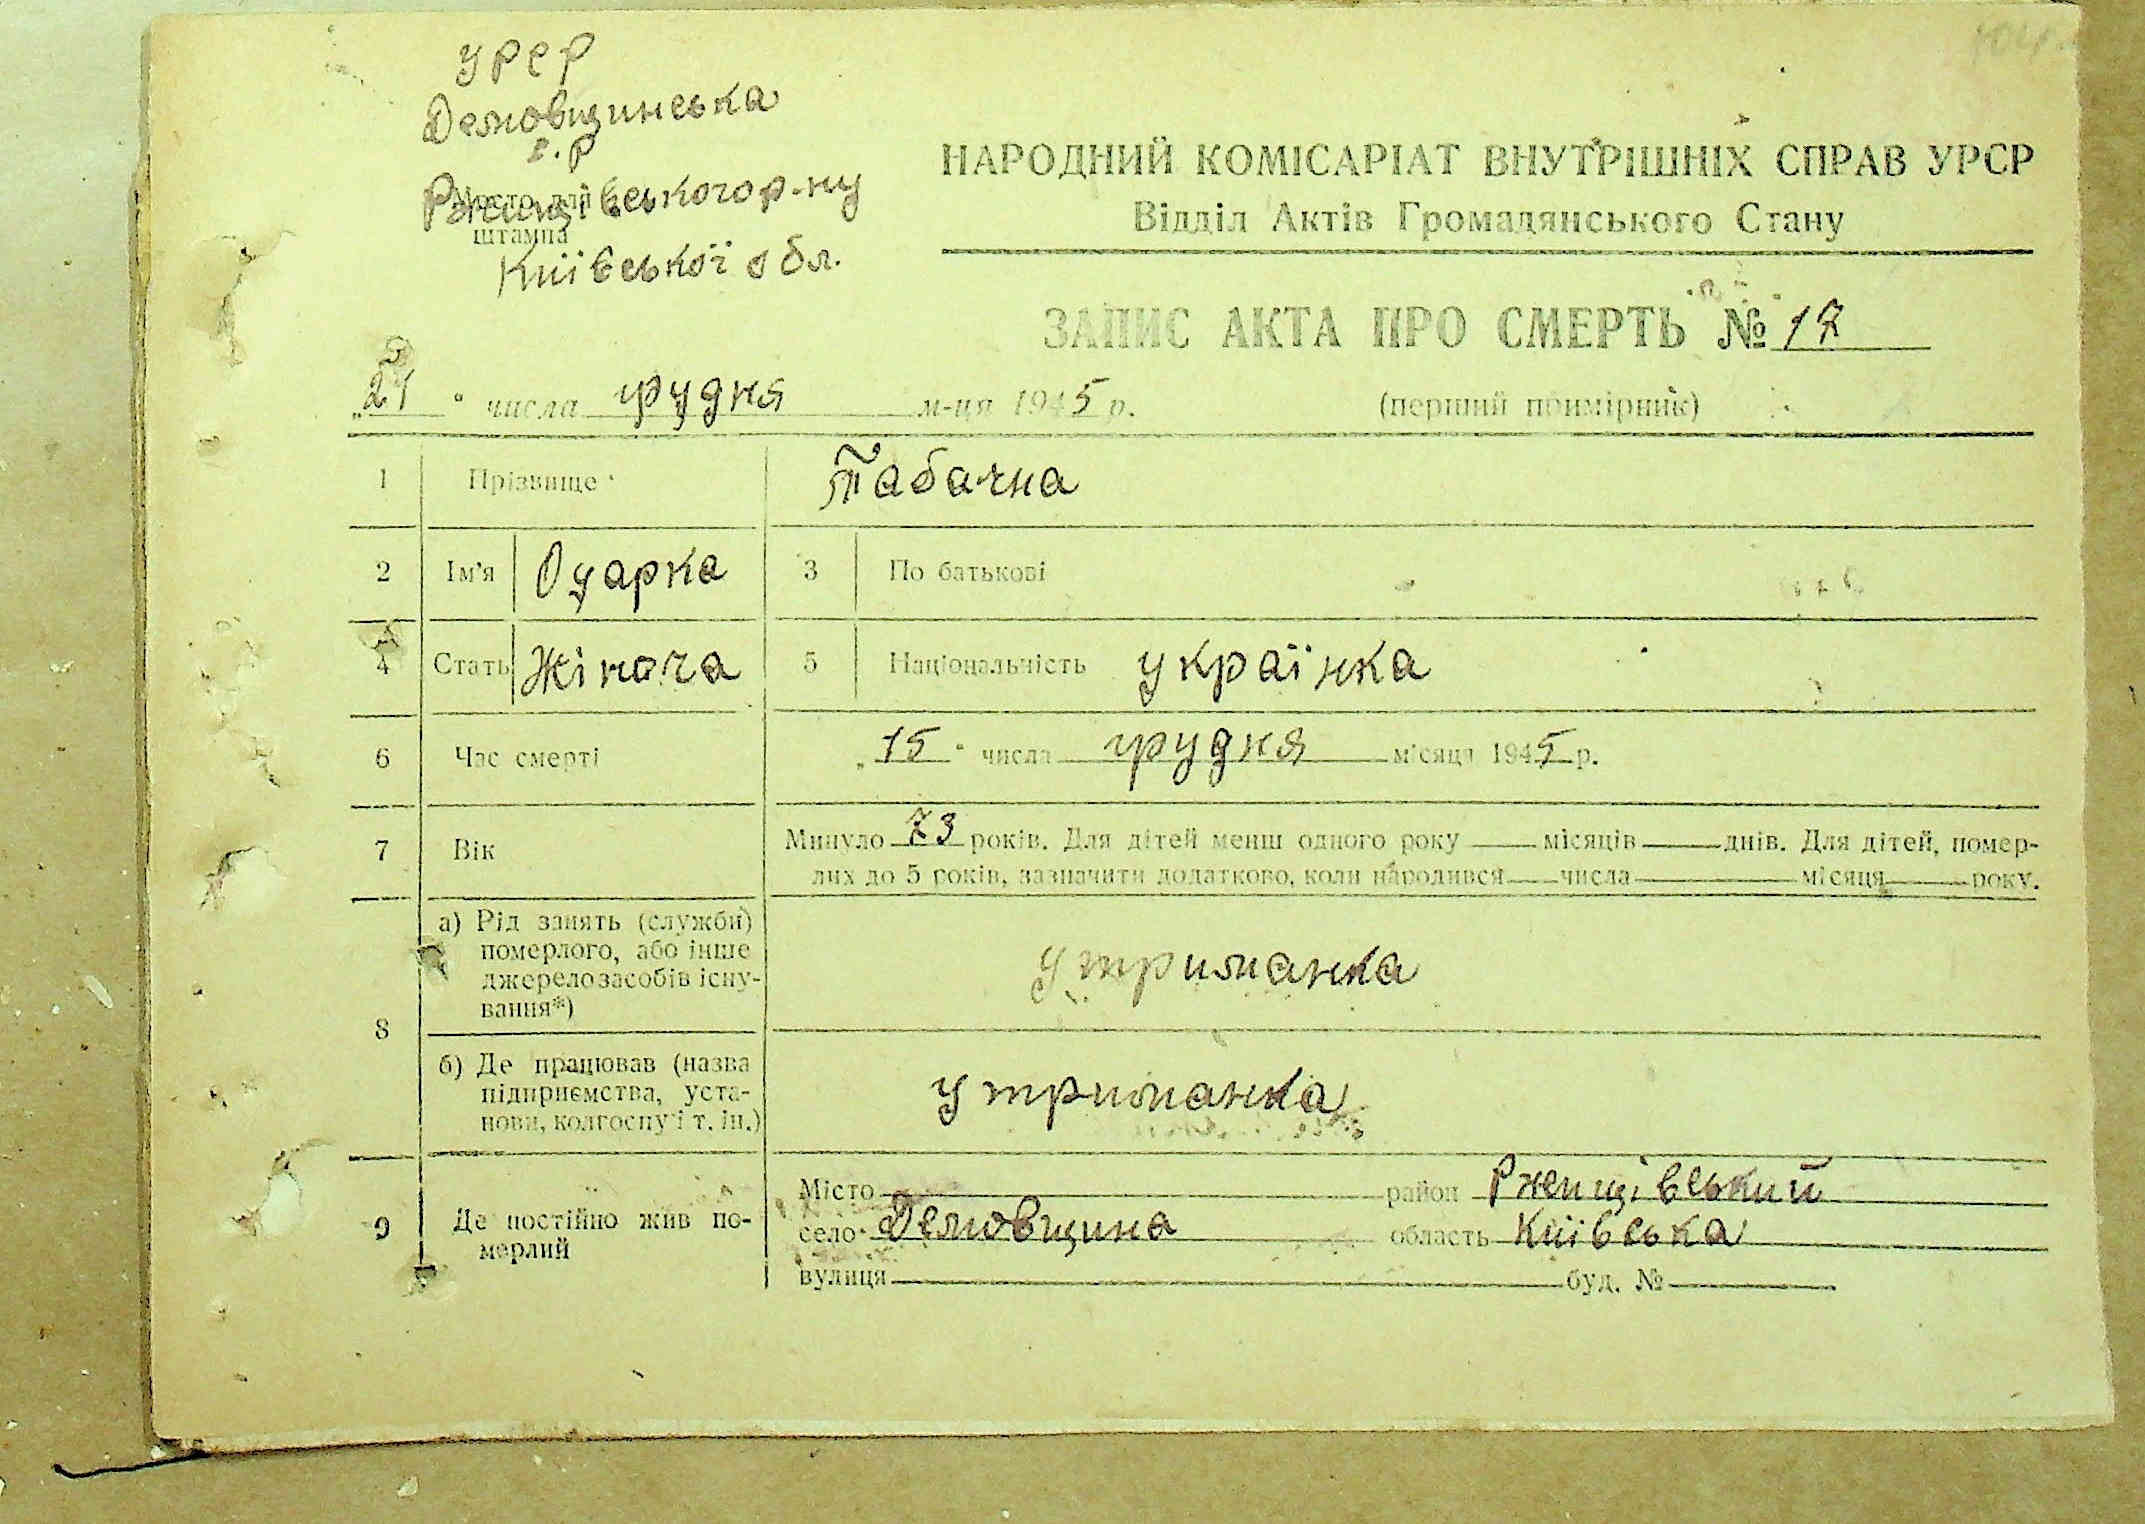 УРСР
Демовщинська
с.р
Ржищівського р-ну
Місто для
штампа
Київської обл.
НАРОДНИЙ КОМІСАРІАТ ВНУТРІШНІХ СПРАВ УРСР
Відділ Актів Громадянського Стану
ЗАПИС АКТА ПРО СМЕРТЬ № 17
„21" числа грудня м-ця 1945 р. (перший примірник)
1 Прізвище Табачна
2 Ім'я Одарка 3 По батькові
4 Стать Жіноча 5 Національність українка
6 Час смерті „15" числа грудня місяця 1945 р.
7 Вік Минуло 73 років. Для дітей менш одного року місяців днів. Для дітей, помер-
лих до 5 років, зазначити додатково, коли народився числа місяця року.
8 а) Рід занять (служби)
померлого, або інше
джерело засобів існу-
вання*)
утриманка
б) Де працював (назва
підприємства, уста-
нови, колгоспу і т. ін.)
утриманка
9 Де постійно жив по-
мерлий
Місто район Ржищівський
село Демовщина область Київська
вулиця буд. №